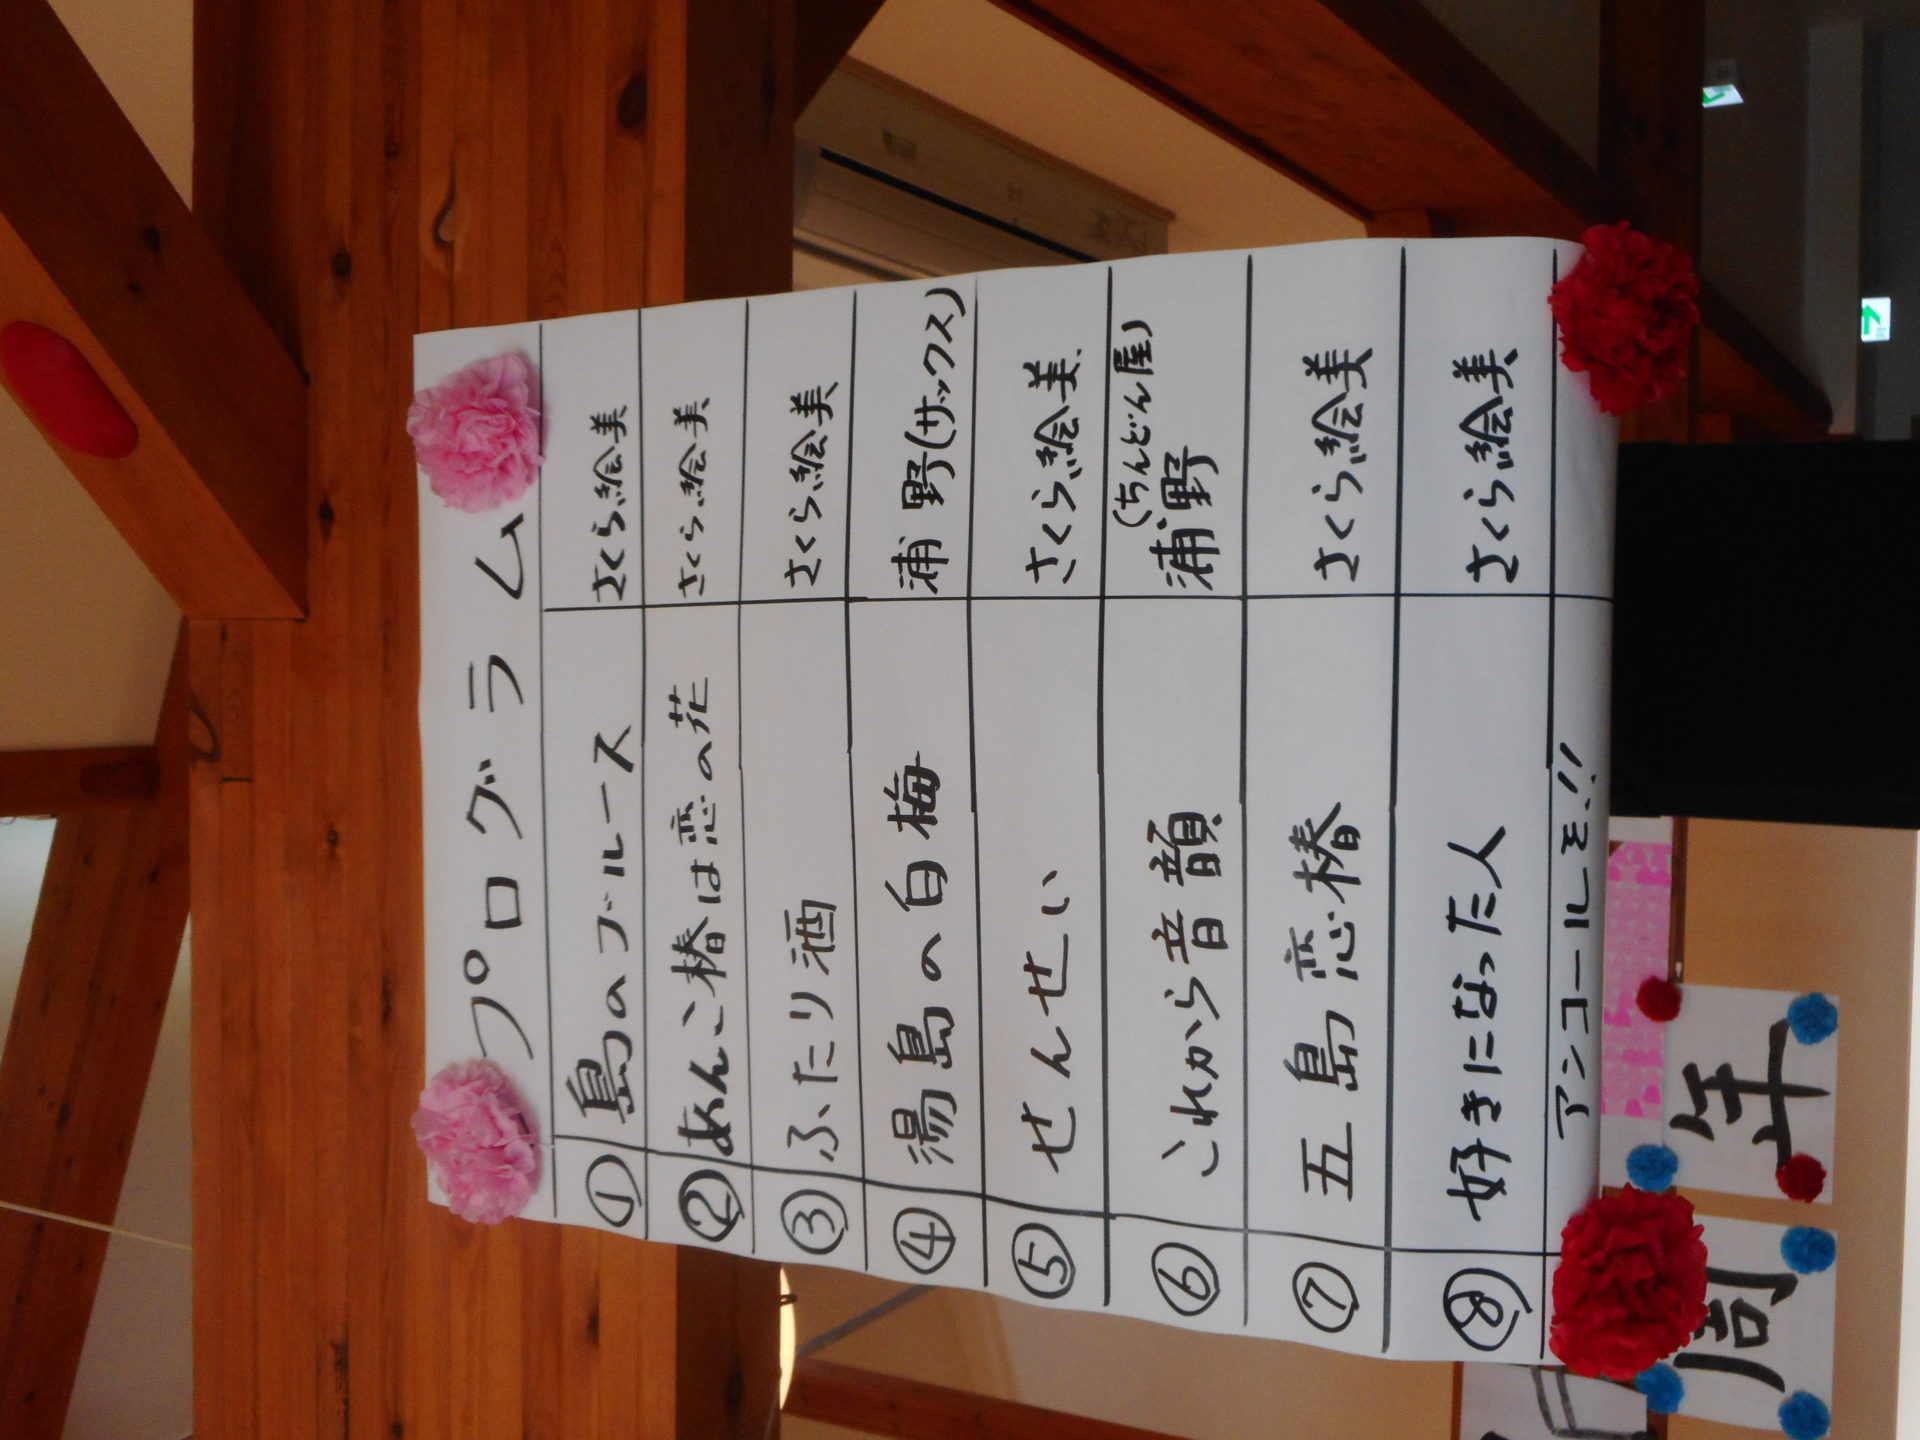 プログラム
① 島のブルース さくら絵美
② あんこ椿は恋の花 さくら絵美
③ ふたり酒 さくら絵美
④ 湯島の白梅 浦野(サックス)
⑤ せんせい さくら絵美
⑥ これから音韻 (ちんどん屋)浦野
⑦ 五島恋椿 さくら絵美
⑧ 好きになった人 さくら絵美
アンコールも!!
周年